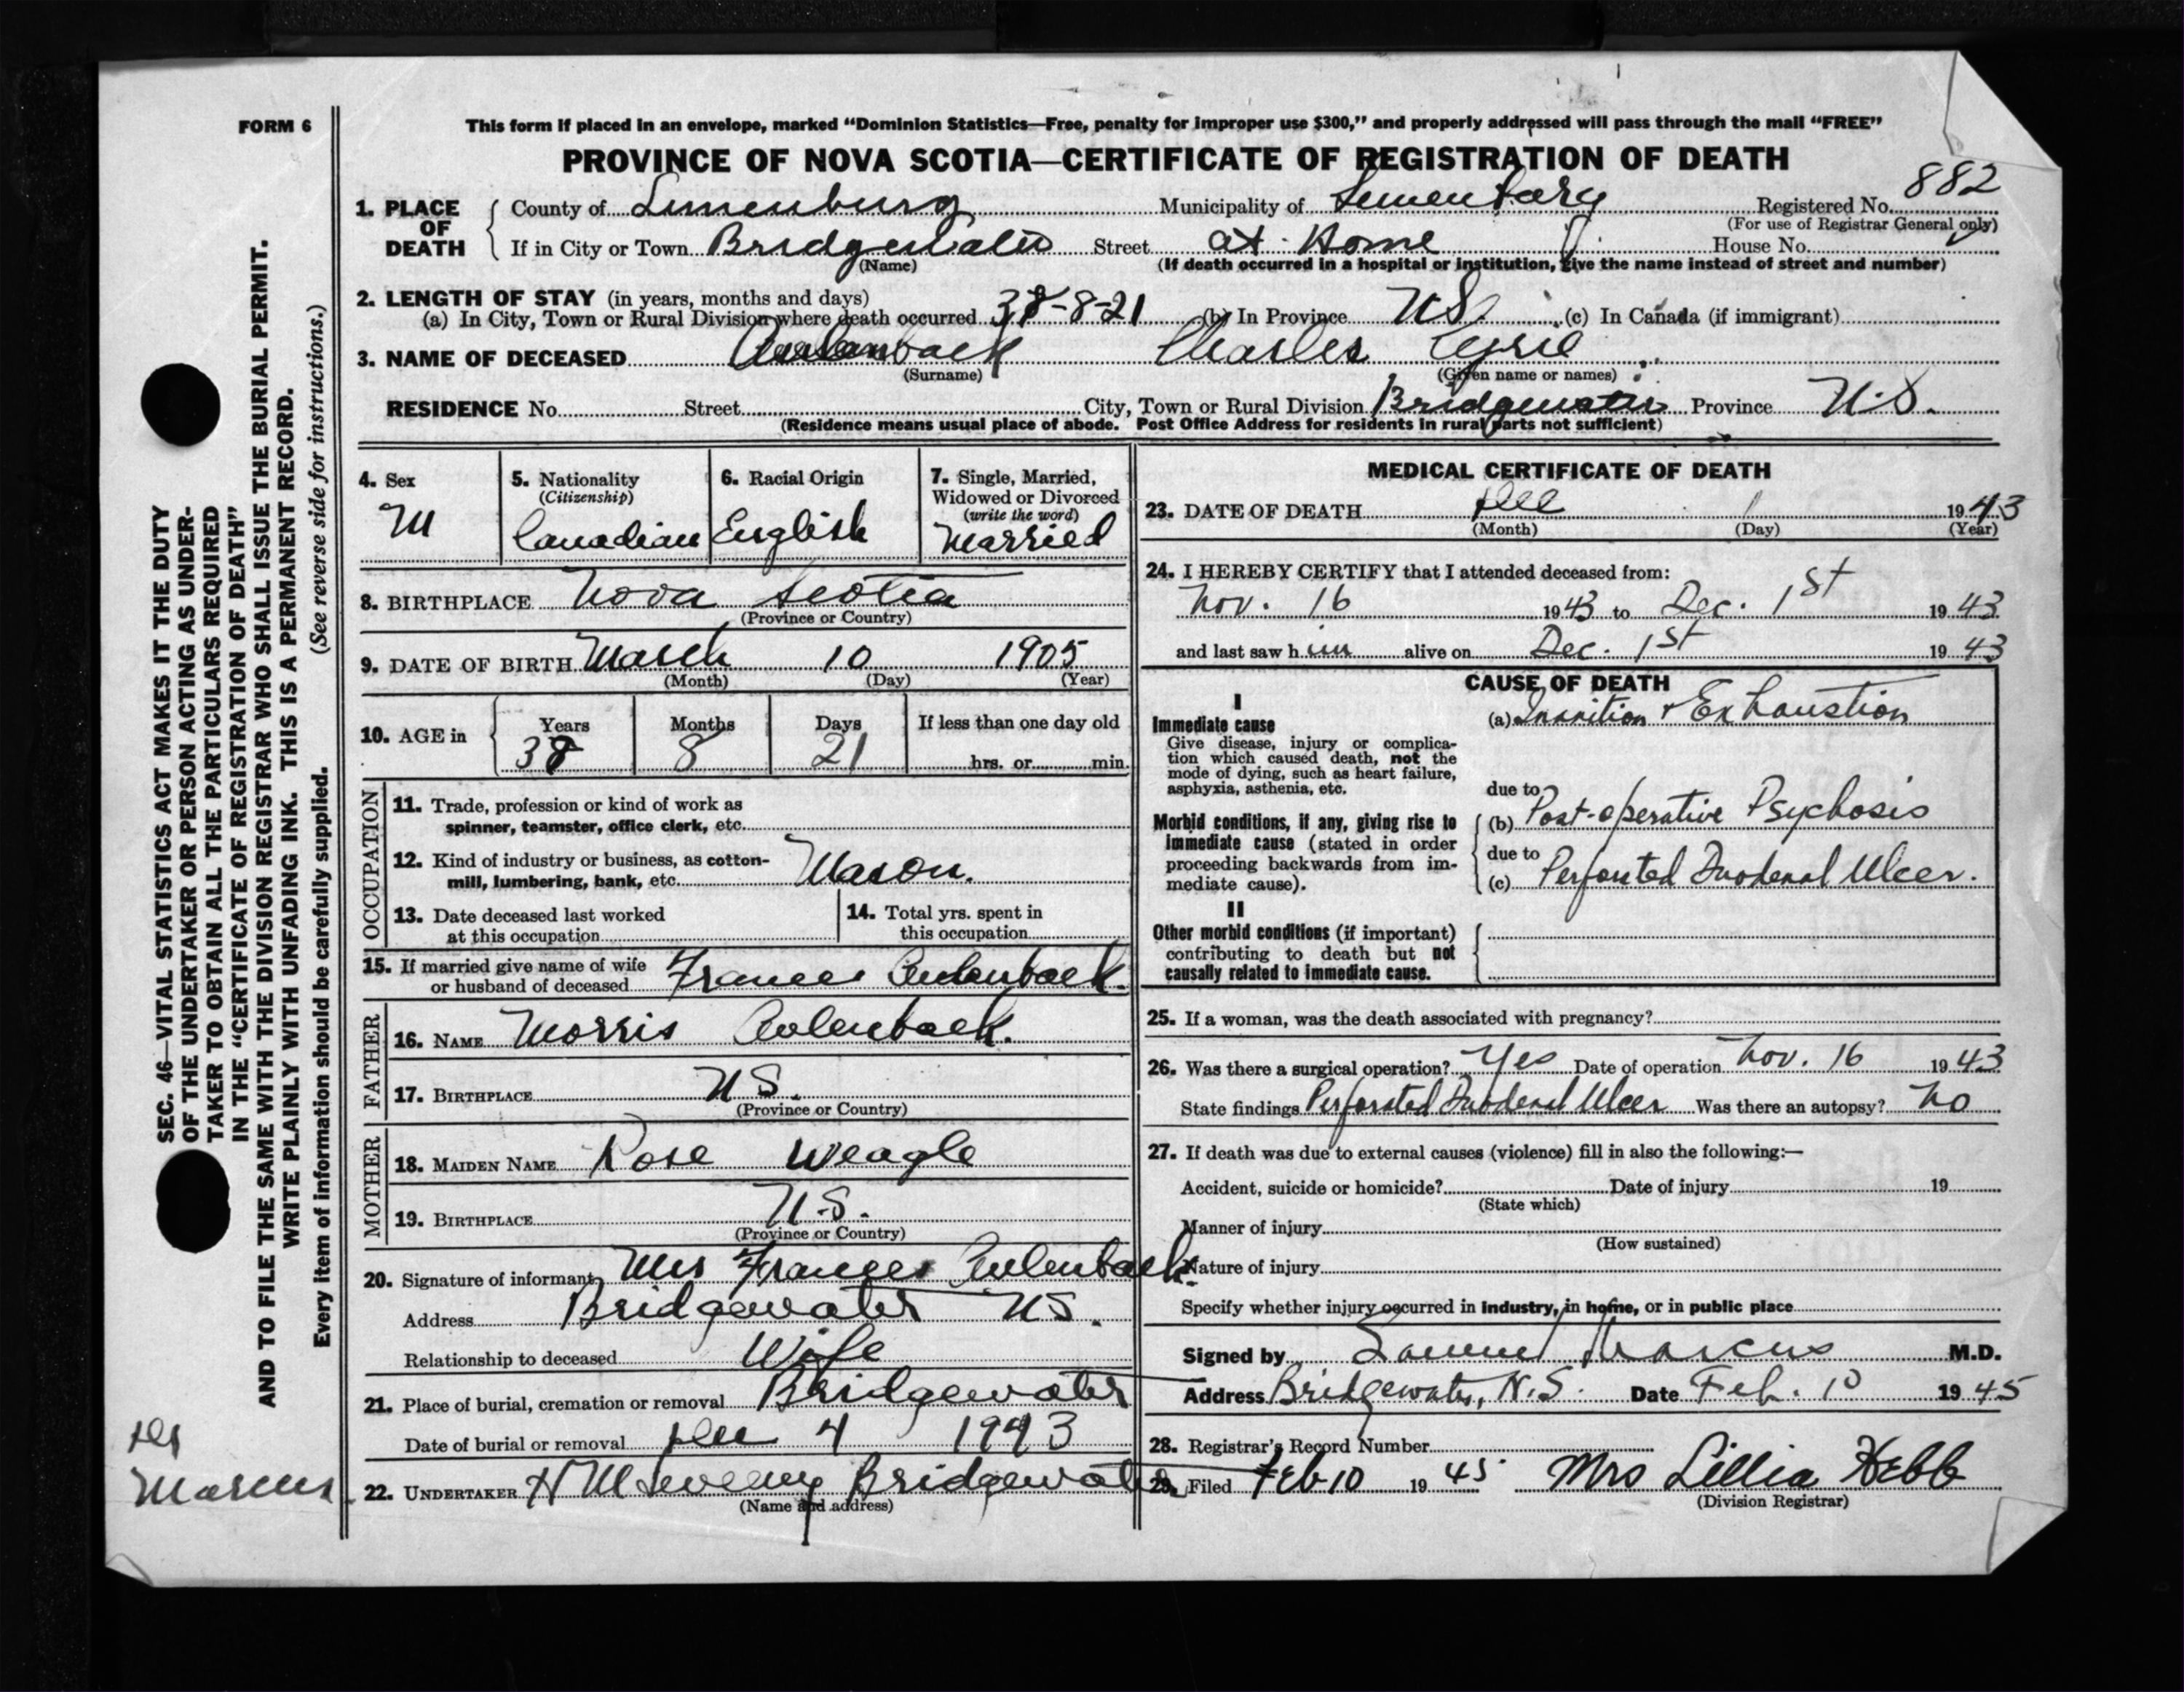 FORM 6
This form if placed in an envelope, marked “Dominion Statistics—Free, penalty for improper use $300,” and properly addressed will pass through the mail “FREE”
PROVINCE OF NOVA SCOTIA—CERTIFICATE OF REGISTRATION OF DEATH
882
1. PLACE OF DEATH { County of Lunenburg Municipality of Lunenburg Registered No.
(For use of Registrar General only)
If in City or Town Bridgewater Street at Home House No.
(Name) (If death occurred in a hospital or institution, give the name instead of street and number)
2. LENGTH OF STAY (in years, months and days)
(a) In City, Town or Rural Division where death occurred 38-8-21 (b) In Province N.S. (c) In Canada (if immigrant)
3. NAME OF DECEASED Aulenback Charles Cyril
(Surname) (Given name or names)
RESIDENCE No. Street City, Town or Rural Division Bridgewater Province N.S.
(Residence means usual place of abode. Post Office Address for residents in rural parts not sufficient)
4. Sex
M
5. Nationality
(Citizenship)
Canadian
6. Racial Origin
English
7. Single, Married,
Widowed or Divorced
(write the word)
Married
8. BIRTHPLACE Nova Scotia
(Province or Country)
9. DATE OF BIRTH March 10 1905
(Month) (Day) (Year)
10. AGE in { Years Months Days If less than one day old
38 8 21 hrs. or min.
OCCUPATION
11. Trade, profession or kind of work as
spinner, teamster, office clerk, etc.
12. Kind of industry or business, as cotton-
mill, lumbering, bank, etc. Mason.
13. Date deceased last worked
at this occupation
14. Total yrs. spent in
this occupation
15. If married give name of wife
or husband of deceased Frances Aulenback.
FATHER
16. NAME Morris Aulenback.
17. BIRTHPLACE N S.
(Province or Country)
MOTHER
18. MAIDEN NAME Rose Weagle
19. BIRTHPLACE N.S.
(Province or Country)
20. Signature of informant Mrs Frances Aulenback.
Address Bridgewater NS.
Relationship to deceased Wife
21. Place of burial, cremation or removal Bridgewater
Date of burial or removal Dec 4 1943
22. UNDERTAKER H M Bridgewater
(Name and address)
MEDICAL CERTIFICATE OF DEATH
23. DATE OF DEATH Dec 1 1943
(Month) (Day) (Year)
24. I HEREBY CERTIFY that I attended deceased from:
Nov. 16 1943 to Dec. 1st 1943
and last saw him alive on Dec. 1st 1943
CAUSE OF DEATH
I
Immediate cause
Give disease, injury or complica-
tion which caused death, not the
mode of dying, such as heart failure,
asphyxia, asthenia, etc.
(a) Inanition & Exhaustion
due to
Morbid conditions, if any, giving rise to
immediate cause (stated in order
proceeding backwards from im-
mediate cause).
(b) Post-operative Psychosis
due to
(c) Perforated Duodenal Ulcer.
II
Other morbid conditions (if important)
contributing to death but not
causally related to immediate cause.
25. If a woman, was the death associated with pregnancy?
26. Was there a surgical operation? Yes Date of operation Nov. 16 1943
State findings Perforated Duodenal Ulcer Was there an autopsy? No
27. If death was due to external causes (violence) fill in also the following:—
Accident, suicide or homicide? Date of injury 19
(State which)
Manner of injury
(How sustained)
Nature of injury
Specify whether injury occurred in industry, in home, or in public place
Signed by Samuel Marcus M.D.
Address Bridgewater, N.S. Date Feb. 10 1945
28. Registrar's Record Number
29. Filed Feb 10 1945 Mrs Lillia Hebb
(Division Registrar)
SEC. 46—VITAL STATISTICS ACT MAKES IT THE DUTY
OF THE UNDERTAKER OR PERSON ACTING AS UNDER-
TAKER TO OBTAIN ALL THE PARTICULARS REQUIRED
IN THE “CERTIFICATE OF REGISTRATION OF DEATH”
AND TO FILE THE SAME WITH THE DIVISION REGISTRAR WHO SHALL ISSUE THE BURIAL PERMIT.
WRITE PLAINLY WITH UNFADING INK. THIS IS A PERMANENT RECORD.
Every item of information should be carefully supplied. (See reverse side for instructions.)
Dr
Marcus.